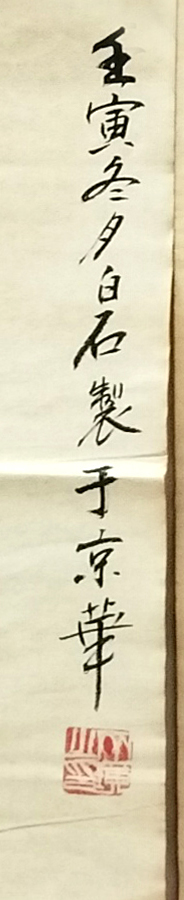 壬寅冬夕白石製于京華